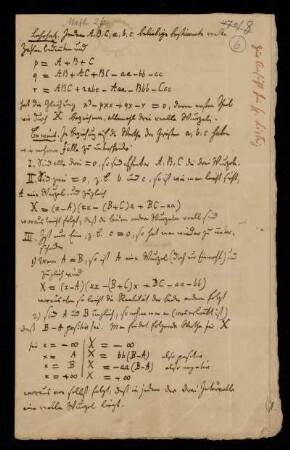 Math 21
Lehrsatz. Indem A. B. C, a, b, c beliebige bestimmte reelle
Zahlen bedeuten und
p = A + B + C
q = AB + AC + BC − aa − bb − cc
r = ABC + 2abc − Aaa − Bbb − Ccc
hat die Gleichung x³ − pxx + qx − r = 0, deren erster Theil
wir durch X bezeichnen, allemal drei reelle Wurzeln.
Beweis. In Beziehung auf die Werthe der Größen a, b, c haben
wir mehrere Fälle zu unterscheiden
I. Sind alle drei = 0, so sind offenbar A, B, C die drei Wurzeln.
II. Sind zwei = 0, z. B. b und c, so ist wie man leicht sieht,
A eine Wurzel, und zugleich
X = (x−A)(xx − (B+C)x + BC − aa)
woraus leicht folgt, daß die beiden andern Wurzeln reell sind
III. Ist nur Eine, z. B. c = 0, so hat man wieder zu unter-
scheiden
1) Wenn A = B, so ist A eine Wurzel (doch nur einmahl) und
zugleich wird
X = (x−A)(xx − (B+C)x + BC − aa − bb)
woraus eben so leicht die Realität der beiden andern folgt
2) sind A und B ungleich, so nehmen wir (was erlaubt ist)
daß B−A positiv sei. Man findet folgende Werthe für X
für x = −∞ | X = −∞
x = A | X = bb(B−A) also positiv
x = B | X = −aa(B−A) also negativ
x = +∞ | X = +∞
woraus von selbst folgt, daß in jedem der drei Intervalle
eine reelle Wurzel liegt.